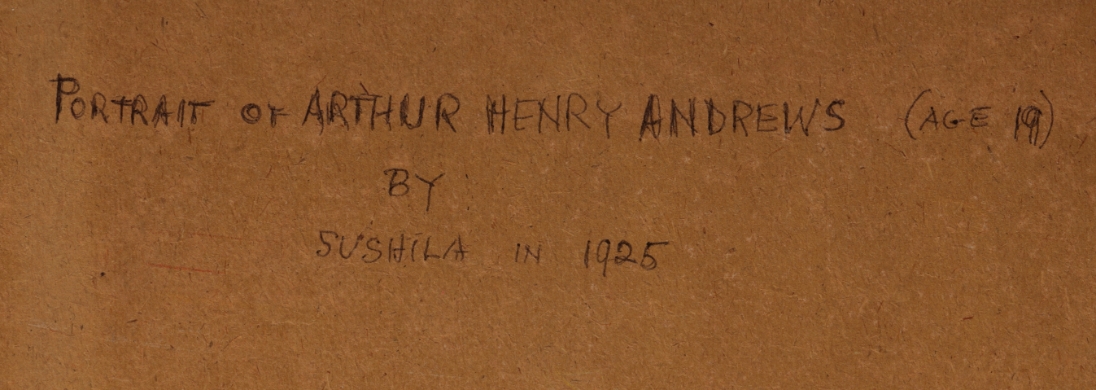 PORTRAIT OF ARTHUR HENRY ANDREWS (AGE 19)
BY
SUSHILA IN 1925